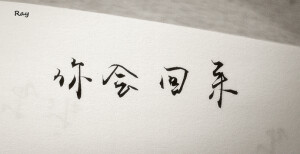 Ray
你会回来